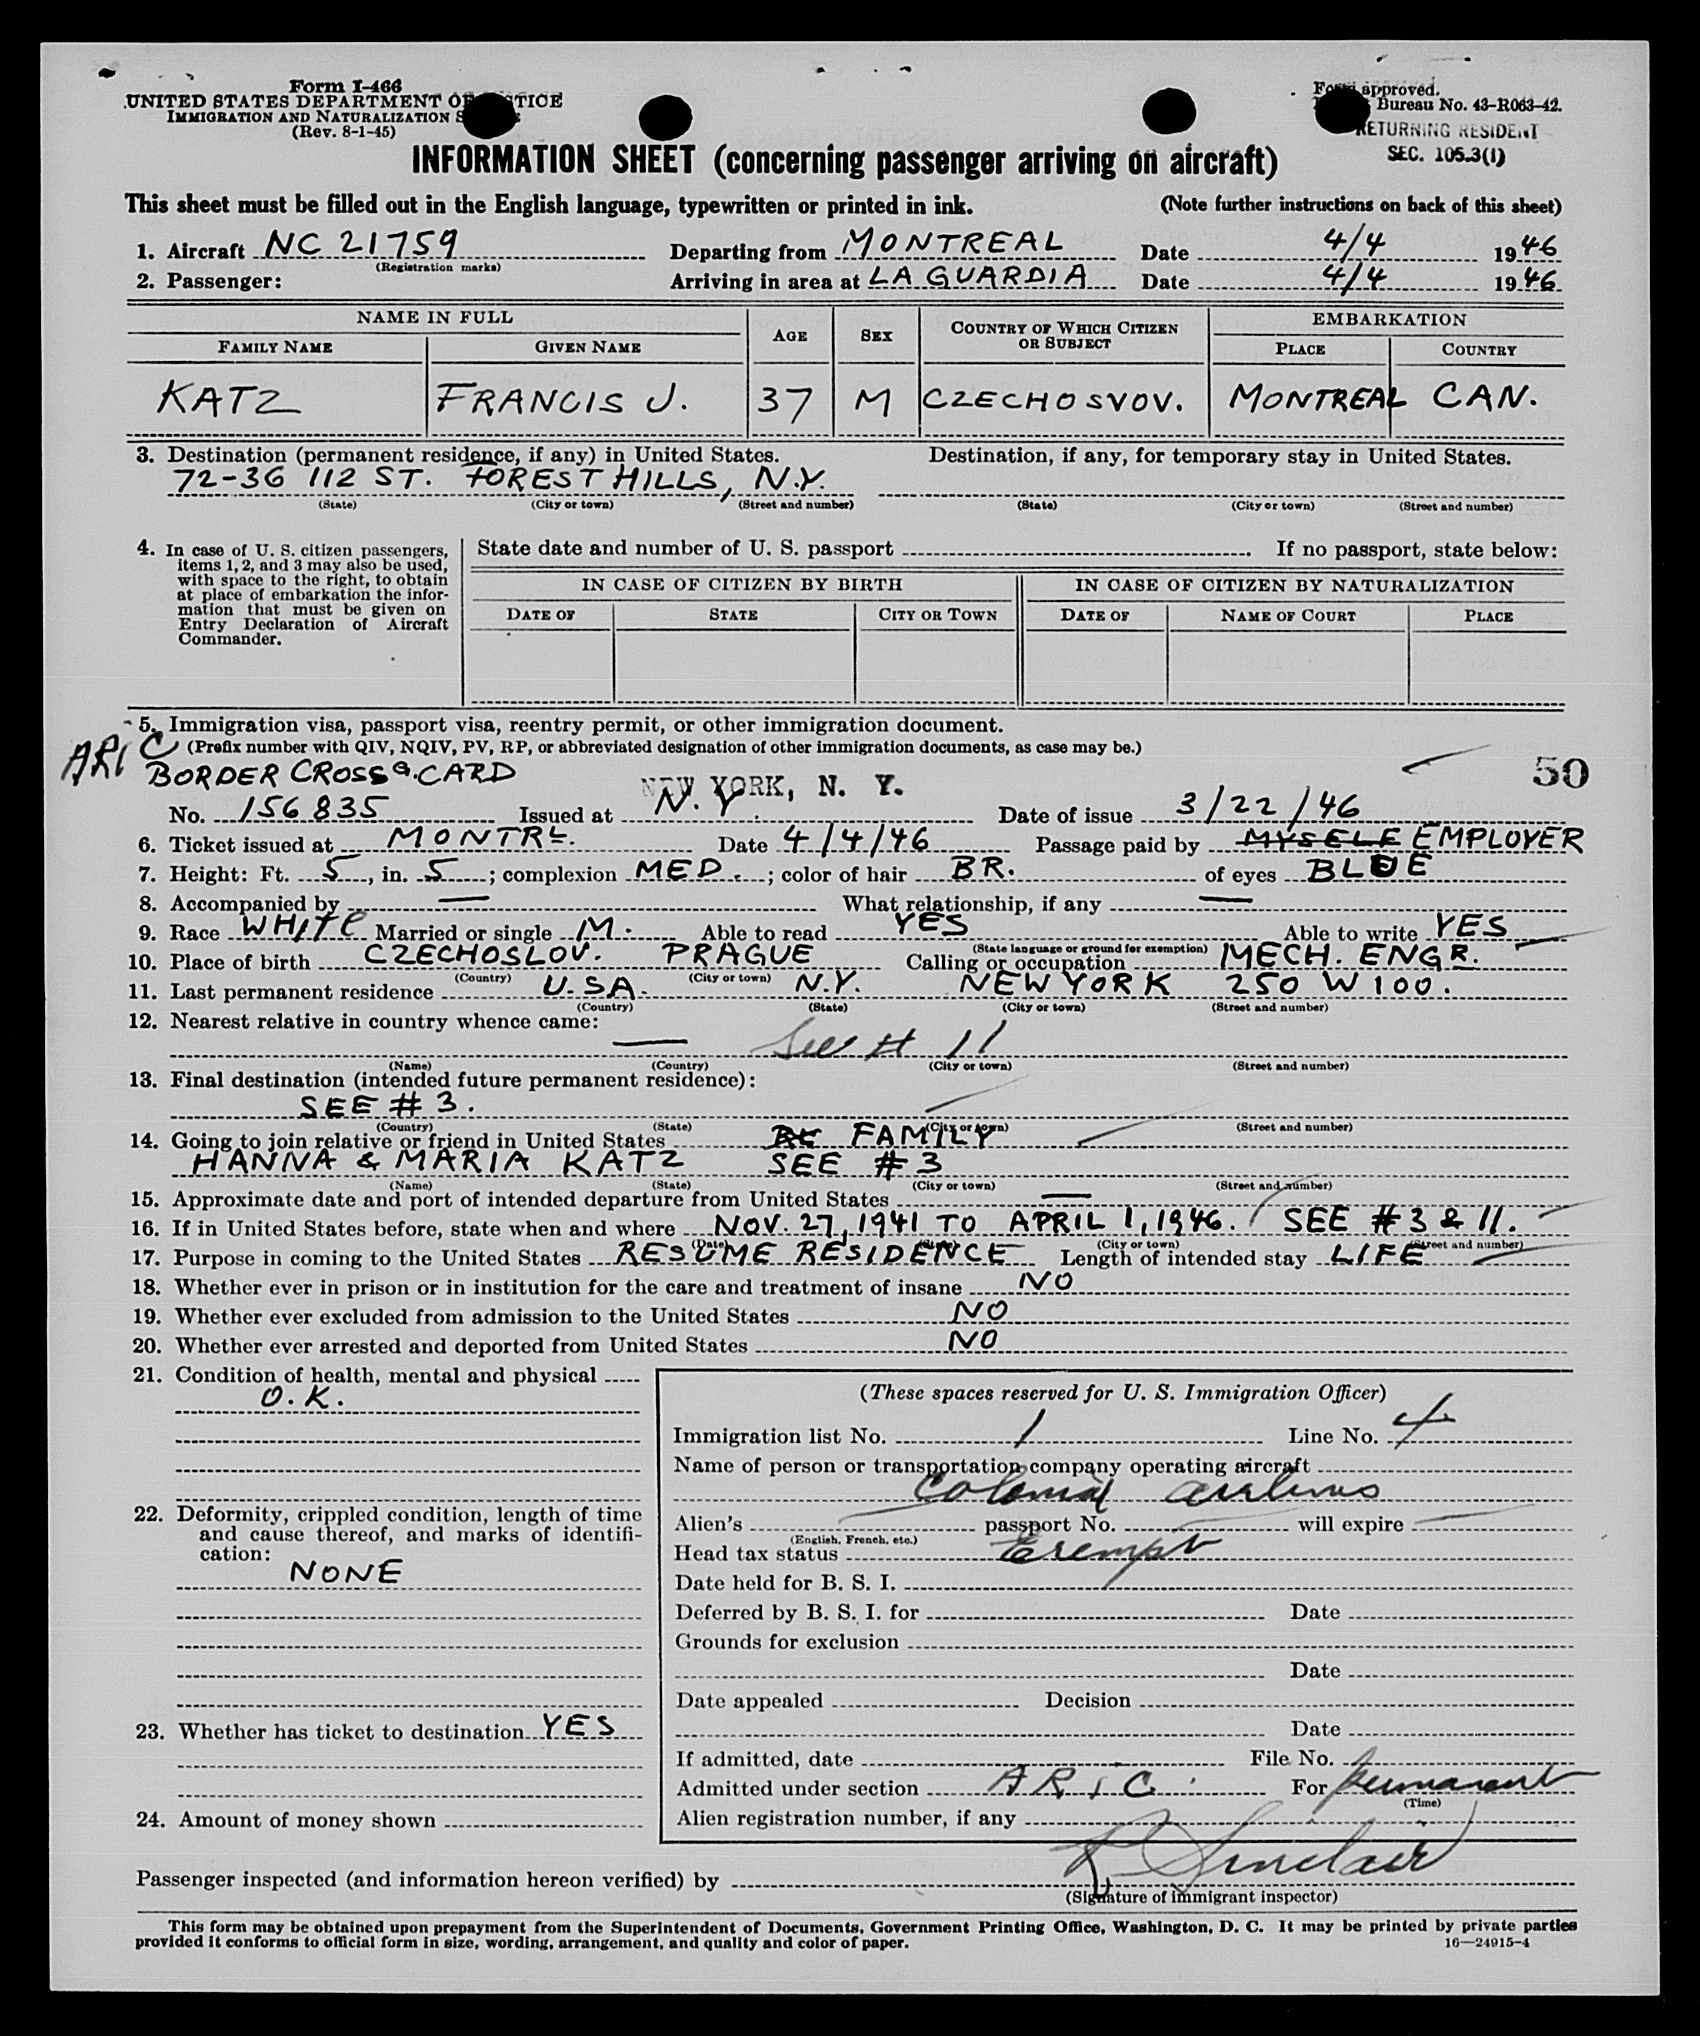 Form I-466
UNITED STATES DEPARTMENT OF JUSTICE
IMMIGRATION AND NATURALIZATION
(Rev. 8-1-45)
Form approved.
Bureau No. 43-R063-42.
RETURNING RESIDENT
SEC. 105.3(1)
INFORMATION SHEET (concerning passenger arriving on aircraft)
This sheet must be filled out in the English language, typewritten or printed in ink. (Note further instructions on back of this sheet)
1. Aircraft NC 21759 Departing from MONTREAL Date 4/4 1946
(Registration marks)
2. Passenger: Arriving in area at LA GUARDIA Date 4/4 1946
NAME IN FULL AGE SEX COUNTRY OF WHICH CITIZEN OR SUBJECT EMBARKATION
FAMILY NAME GIVEN NAME PLACE COUNTRY
KATZ FRANCIS J. 37 M CZECHOSVOV. MONTREAL CAN.
3. Destination (permanent residence, if any) in United States. Destination, if any, for temporary stay in United States.
72-36 112 ST. FOREST HILLS, N.Y.
(State) (City or town) (Street and number) (State) (City or town) (Street and number)
4. In case of U. S. citizen passengers, items 1, 2, and 3 may also be used, with space to the right, to obtain at place of embarkation the information that must be given on Entry Declaration of Aircraft Commander.
State date and number of U. S. passport . If no passport, state below:
IN CASE OF CITIZEN BY BIRTH IN CASE OF CITIZEN BY NATURALIZATION
DATE OF STATE CITY OR TOWN DATE OF NAME OF COURT PLACE
5. Immigration visa, passport visa, reentry permit, or other immigration document.
ARIC (Prefix number with QIV, NQIV, PV, RP, or abbreviated designation of other immigration documents, as case may be.)
BORDER CROSSG. CARD NEW YORK, N. Y. 50
No. 156835 Issued at N.Y. Date of issue 3/22/46
6. Ticket issued at MONTRL. Date 4/4/46 Passage paid by MYSELF EMPLOYER
7. Height: Ft. 5, in. 5; complexion MED.; color of hair BR. of eyes BLUE
8. Accompanied by — What relationship, if any —
9. Race WHITE Married or single M. Able to read YES Able to write YES
(State language or ground for exemption)
10. Place of birth CZECHOSLOV. PRAGUE Calling or occupation MECH. ENGR.
(Country) (City or town)
11. Last permanent residence U.S.A. N.Y. NEW YORK 250 W 100.
(Country) (State) (City or town) (Street and number)
12. Nearest relative in country whence came:
— See # 11
(Name) (Country) (City or town) (Street and number)
13. Final destination (intended future permanent residence):
SEE # 3.
(Country) (State) (City or town) (Street and number)
14. Going to join relative or friend in United States FAMILY
HANNA & MARIA KATZ SEE #3
(Name) (State) (City or town) (Street and number)
15. Approximate date and port of intended departure from United States —
16. If in United States before, state when and where NOV. 27, 1941 TO APRIL 1, 1946. SEE #3 & 11.
(Date) (State) (City or town) (Street and number)
17. Purpose in coming to the United States RESUME RESIDENCE Length of intended stay LIFE
18. Whether ever in prison or in institution for the care and treatment of insane NO
19. Whether ever excluded from admission to the United States NO
20. Whether ever arrested and deported from United States NO
21. Condition of health, mental and physical
O.K.
22. Deformity, crippled condition, length of time and cause thereof, and marks of identification:
NONE
23. Whether has ticket to destination YES
24. Amount of money shown
(These spaces reserved for U. S. Immigration Officer)
Immigration list No. 1 Line No. 4
Name of person or transportation company operating aircraft
Colonial Airlines
Alien's passport No. will expire
(English, French, etc.)
Head tax status Exempt
Date held for B. S. I.
Deferred by B. S. I. for Date
Grounds for exclusion
Date
Date appealed Decision
Date
If admitted, date File No.
Admitted under section ARIC For permanent
(Time)
Alien registration number, if any
Passenger inspected (and information hereon verified) by Sinclair
(Signature of immigrant inspector)
This form may be obtained upon prepayment from the Superintendent of Documents, Government Printing Office, Washington, D. C. It may be printed by private parties
provided it conforms to official form in size, wording, arrangement, and quality and color of paper. 16—24915-4